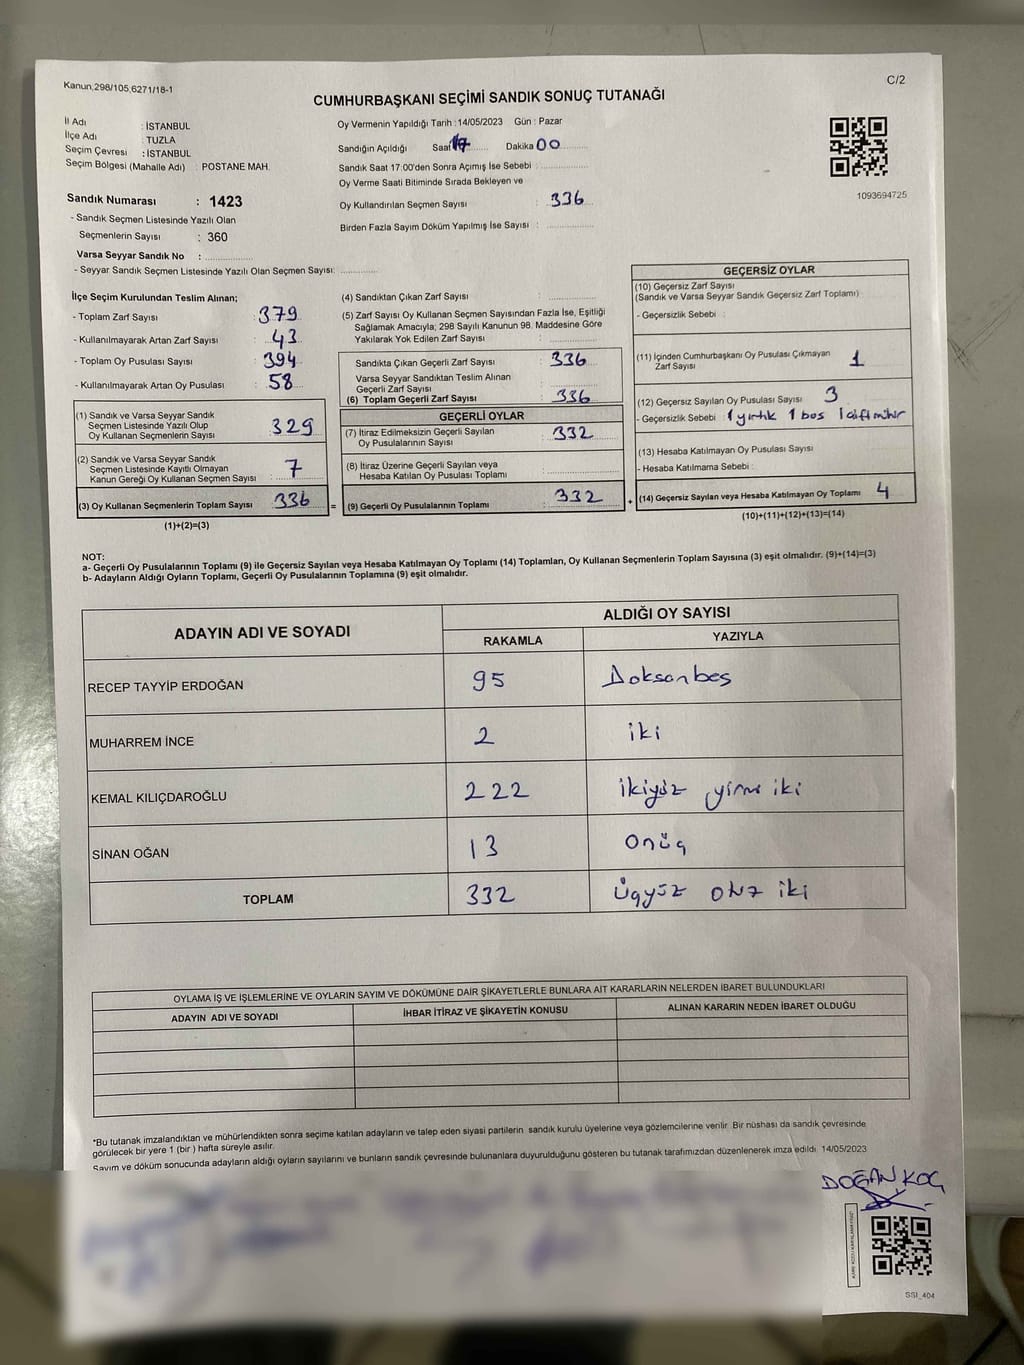 Kanun;298/105,6271/18-1
C/2
CUMHURBAŞKANI SEÇİMİ SANDIK SONUÇ TUTANAĞI
İl Adı : İSTANBUL
İlçe Adı : TUZLA
Seçim Çevresi : İSTANBUL
Seçim Bölgesi (Mahalle Adı) : POSTANE MAH.
Sandık Numarası : 1423
- Sandık Seçmen Listesinde Yazılı Olan
Seçmenlerin Sayısı : 360
Varsa Seyyar Sandık No :
- Seyyar Sandık Seçmen Listesinde Yazılı Olan Seçmen Sayısı:
Oy Vermenin Yapıldığı Tarih :14/05/2023 Gün : Pazar
Sandığın Açıldığı Saat 17 Dakika 00
Sandık Saat 17:00'den Sonra Açımış İse Sebebi :
Oy Verme Saati Bitiminde Sırada Bekleyen ve
Oy Kullandırılan Seçmen Sayısı : 336
Birden Fazla Sayım Döküm Yapılmış İse Sayısı :
1093694725
İlçe Seçim Kurulundan Teslim Alınan;
- Toplam Zarf Sayısı : 379
- Kullanılmayarak Artan Zarf Sayısı : 43
- Toplam Oy Pusulası Sayısı : 394
- Kullanılmayarak Artan Oy Pusulası : 58
(1) Sandık ve Varsa Seyyar Sandık
Seçmen Listesinde Yazılı Olup
Oy Kullanan Seçmenlerin Sayısı : 329
(2) Sandık ve Varsa Seyyar Sandık
Seçmen Listesinde Kayıtlı Olmayan
Kanun Gereği Oy Kullanan Seçmen Sayısı : 7
(3) Oy Kullanan Seçmenlerin Toplam Sayısı : 336 =
(1)+(2)=(3)
(4) Sandıktan Çıkan Zarf Sayısı :
(5) Zarf Sayısı Oy Kullanan Seçmen Sayısından Fazla İse, Eşitliği
Sağlamak Amacıyla; 298 Sayılı Kanunun 98. Maddesine Göre
Yakılarak Yok Edilen Zarf Sayısı :
Sandıkta Çıkan Geçerli Zarf Sayısı : 336
Varsa Seyyar Sandıktan Teslim Alınan
Geçerli Zarf Sayısı :
(6) Toplam Geçerli Zarf Sayısı : 336
GEÇERLİ OYLAR
(7) İtiraz Edilmeksizin Geçerli Sayılan
Oy Pusulalarının Sayısı : 332
(8) İtiraz Üzerine Geçerli Sayılan veya
Hesaba Katılan Oy Pusulası Toplamı :
(9) Geçerli Oy Pusulalarının Toplamı : 332 +
GEÇERSİZ OYLAR
(10) Geçersiz Zarf Sayısı
(Sandık ve Varsa Seyyar Sandık Geçersiz Zarf Toplamı)
- Geçersizlik Sebebi :
(11) İçinden Cumhurbaşkanı Oy Pusulası Çıkmayan
Zarf Sayısı 1
(12) Geçersiz Sayılan Oy Pusulası Sayısı 3
- Geçersizlik Sebebi : 1 yırtık 1 boş 1 çift mühür
(13) Hesaba Katılmayan Oy Pusulası Sayısı
- Hesaba Katılmama Sebebi :
(14) Geçersiz Sayılan veya Hesaba Katılmayan Oy Toplamı 4
(10)+(11)+(12)+(13)=(14)
NOT:
a- Geçerli Oy Pusulalarının Toplamı (9) ile Geçersiz Sayılan veya Hesaba Katılmayan Oy Toplamı (14) Toplamları, Oy Kullanan Seçmenlerin Toplam Sayısına (3) eşit olmalıdır. (9)+(14)=(3)
b- Adayların Aldığı Oyların Toplamı, Geçerli Oy Pusulalarının Toplamına (9) eşit olmalıdır.
ADAYIN ADI VE SOYADI ALDIĞI OY SAYISI
RAKAMLA YAZIYLA
RECEP TAYYİP ERDOĞAN 95 Doksanbeş
MUHARREM İNCE 2 iki
KEMAL KILIÇDAROĞLU 222 ikiyüz yirmi iki
SİNAN OĞAN 13 Onüç
TOPLAM 332 Üçyüz otuz iki
OYLAMA İŞ VE İŞLEMLERİNE VE OYLARIN SAYIM VE DÖKÜMÜNE DAİR ŞİKAYETLERLE BUNLARA AİT KARARLARIN NELERDEN İBARET BULUNDUKLARI
ADAYIN ADI VE SOYADI İHBAR İTİRAZ VE ŞİKAYETİN KONUSU ALINAN KARARIN NEDEN İBARET OLDUĞU
*Bu tutanak imzalandıktan ve mühürlendikten sonra seçime katılan adayların ve talep eden siyasi partilerin sandık kurulu üyelerine veya gözlemcilerine verilir. Bir nüshası da sandık çevresinde
görülecek bir yere 1 (bir) hafta süreyle asılır.
Sayım ve döküm sonucunda adayların aldığı oyların sayılarını ve bunların sandık çevresinde bulunanlara duyurulduğunu gösteren bu tutanak tarafımızdan düzenlenerek imza edildi. 14/05/2023
DOĞAN KOÇ
SSI_404